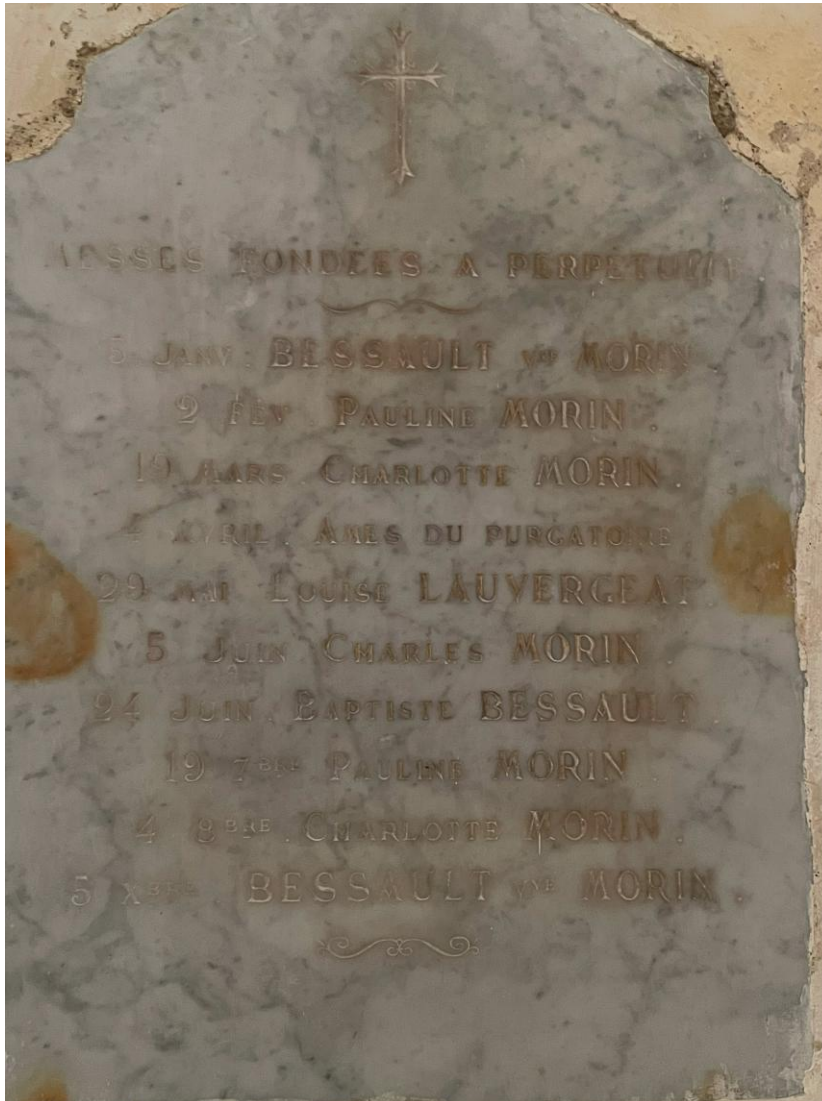 MESSES FONDÉES A PERPÉTUITÉ
5 JANV. BESSAULT Vve MORIN
2 FÉV. PAULINE MORIN.
19 MARS. CHARLOTTE MORIN.
4 AVRIL. AMES DU PURGATOIRE
29 MAI LOUISE LAUVERGEAT.
5 JUIN CHARLES MORIN.
24 JUIN. BAPTISTE BESSAULT.
19 7BRE PAULINE MORIN.
4 8BRE. CHARLOTTE MORIN.
5 XBRE BESSAULT Vve MORIN.